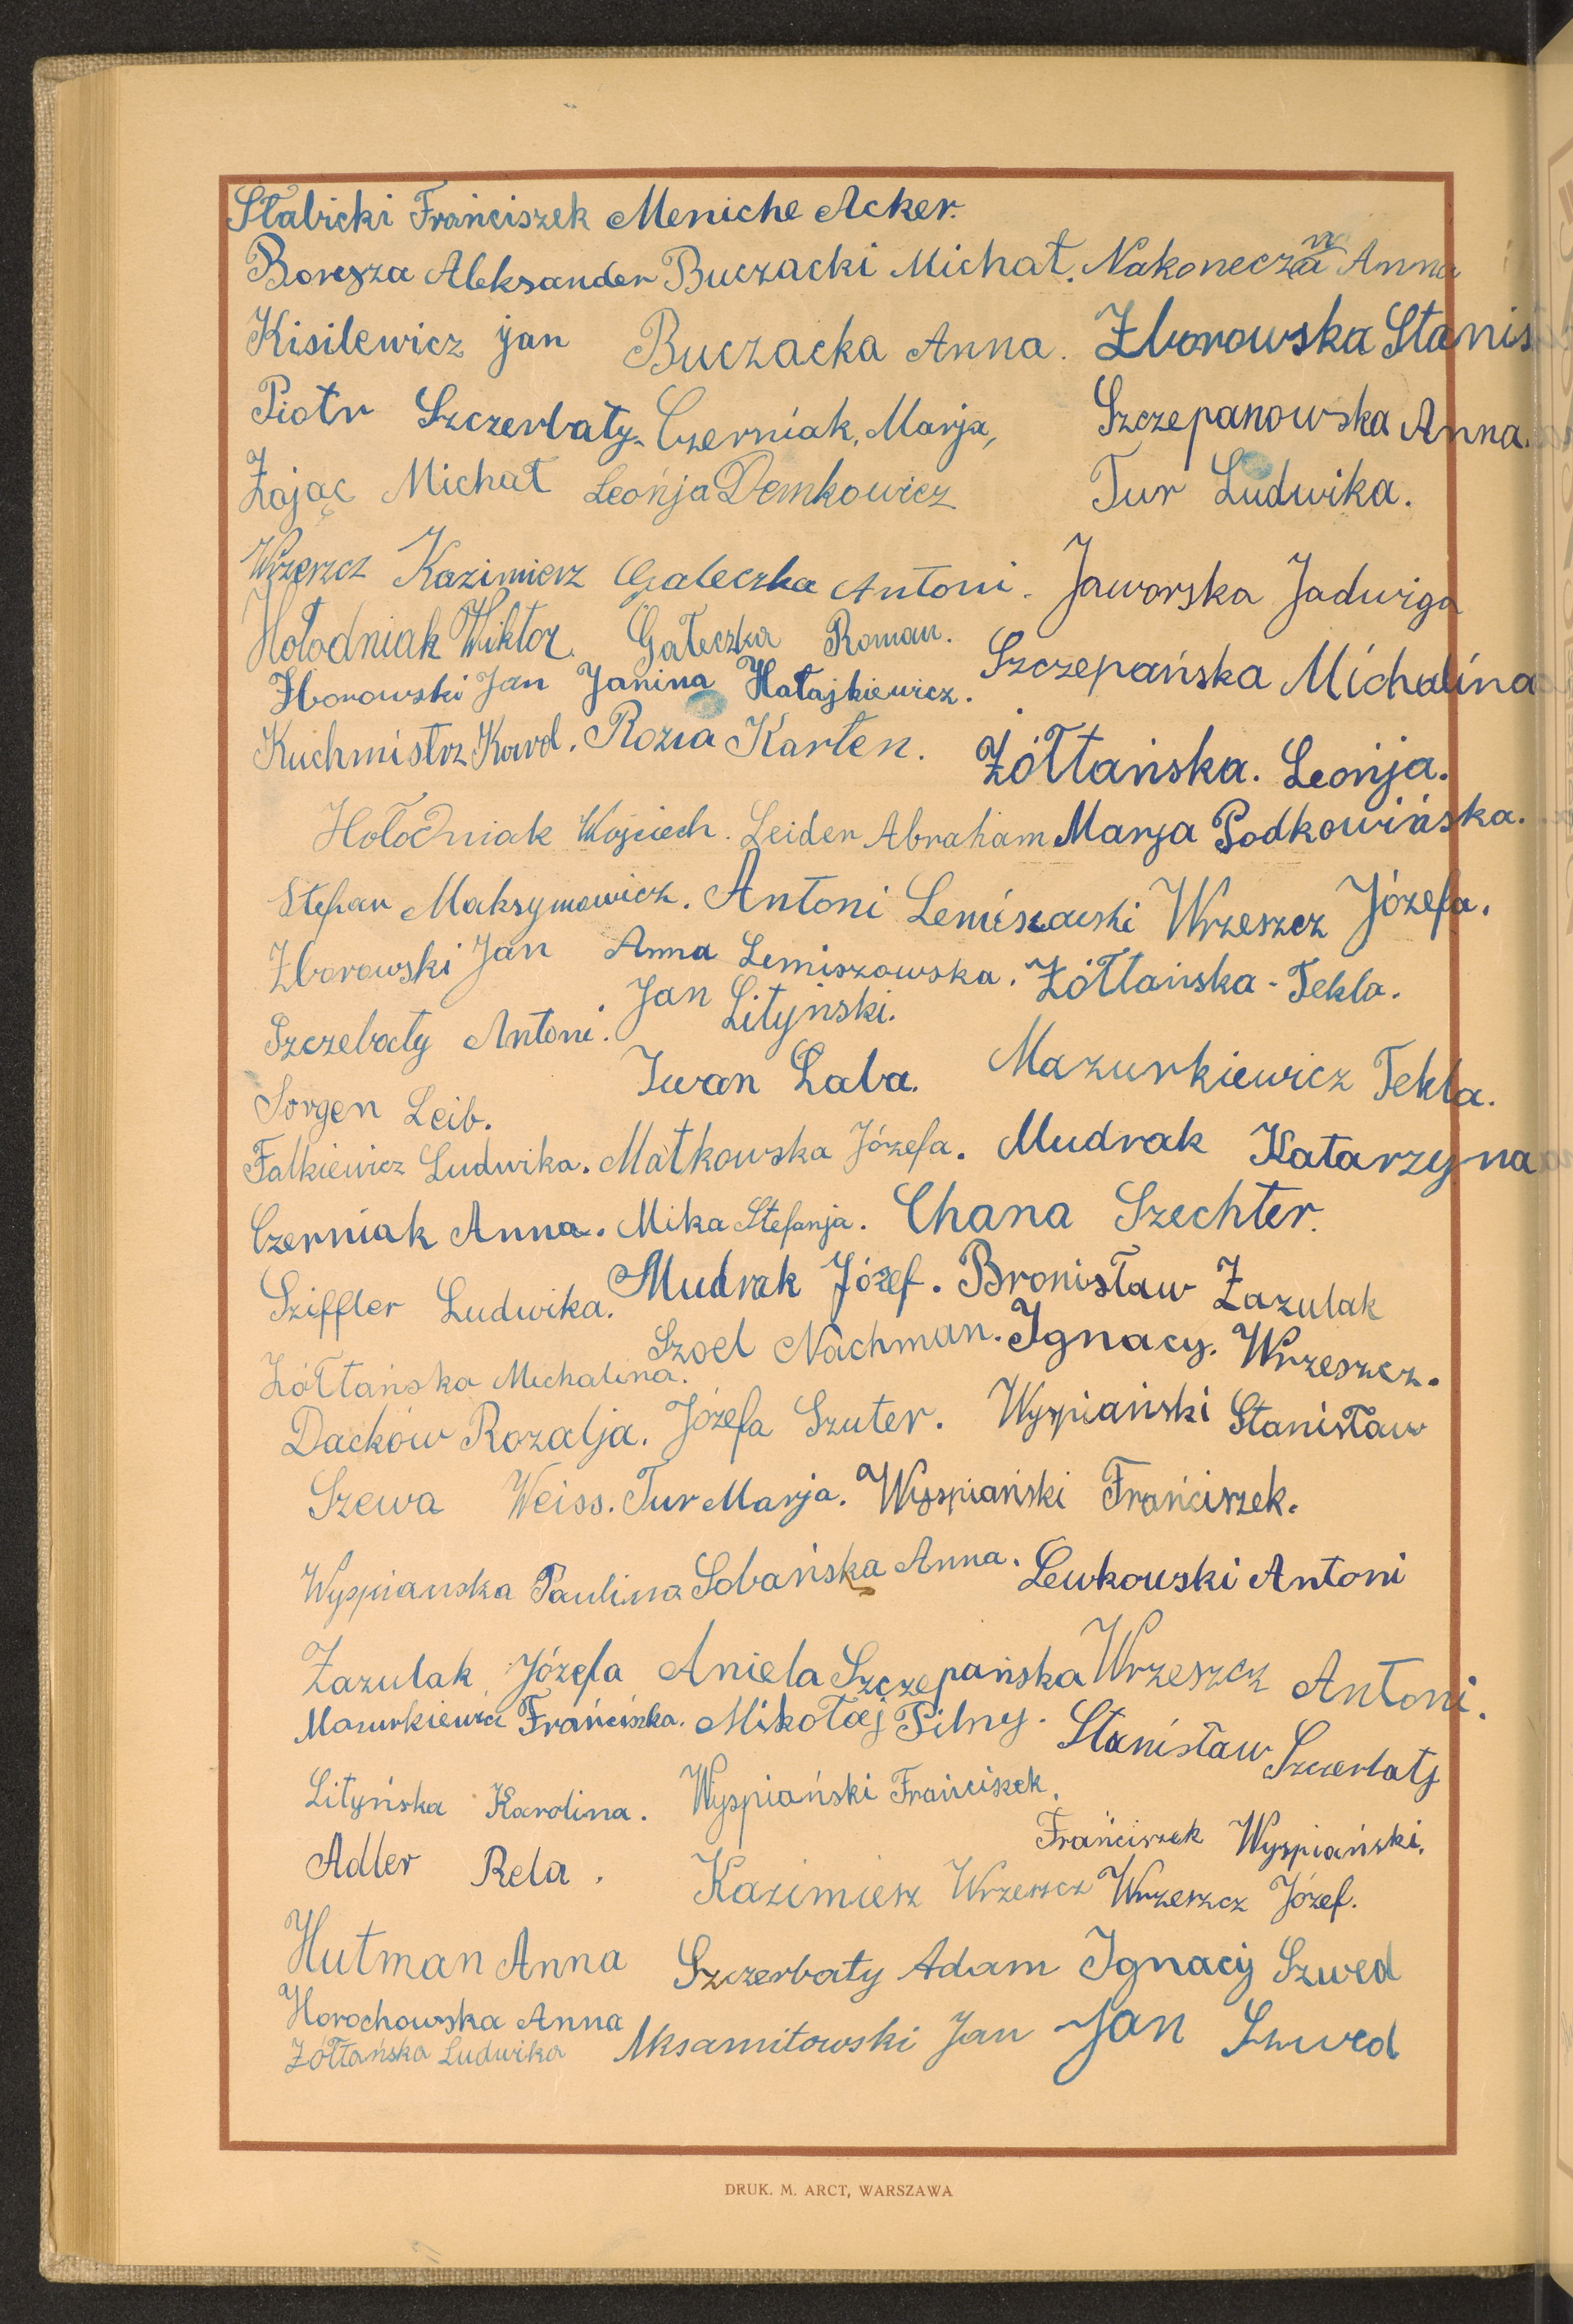 Słabicki Frańciszek Meniche Acker.
Boresza Aleksander Buczacki Michał. Nakoneczna Anna
Kisilewicz jan Buczacka Anna. Zborowska Stanis
Piotr Szczerbaty. Czerniak, Marja, Szczepanowska Anna.
Zając Michał Leońja Demkowicz Tur Ludwika.
Wrzeszcz Kazimierz Gałeczka Antoni. Jaworska Jadwiga
Hołodniak Wiktor. Gałeczka Roman. Szczepańska Michalina
Zborowski Jan Janina Hałajkiewicz.
Kuchmistrz Karol. Rozia Karten. Żółtańska. Leońja.
Hołodniak Wojciech. Leider Abraham Marja Podkowińska.
Stefan Maksymowicz. Antoni Lemiszowski Wrzeszcz Józefa.
Zborowski Jan Anna Lemiszowska. Żółtańska - Tekla.
Szczebaty Antoni. Jan Lityński.
Iwan Łaba. Mazurkiewicz Tekla.
Sorgen Leib.
Falkiewicz Ludwika. Małkowska Józefa. Mudrak Katarzyna
Czerniak Anna. Mika Stefanja. Chana Szechter.
Sziffler Ludwika. Mudrak Józef. Bronisław Zazulak
Żółtańska Michalina. Szoel Nachman. Ignacy. Wrzeszcz.
Daćków Rozalja. Józefa Szuter. Wyspiański Stanisław
Szewa Weiss. Tur Marja. Wyspiański Frańciszek.
Wyspianska Paulina Sobańska Anna. Lewkowski Antoni
Zazulak Józefa Aniela Szczepańska Wrzeszcz Antoni.
Mazurkiewicz Frańciszka. Mikołaj Pilny. Stanisław Szczerbaty
Lityńska Karolina. Wyspiański Frańciszek.
Frańciszek Wyspiański.
Adler Rela. Kazimiesz Wrzeszcz Wrzeszcz Józef.
Hutman Anna Szczerbaty Adam Ignacy Szwed
Horochowska Anna
Żółtańska Ludwika Aksamitowski Jan Jan Szwed
DRUK. M. ARCT, WARSZAWA